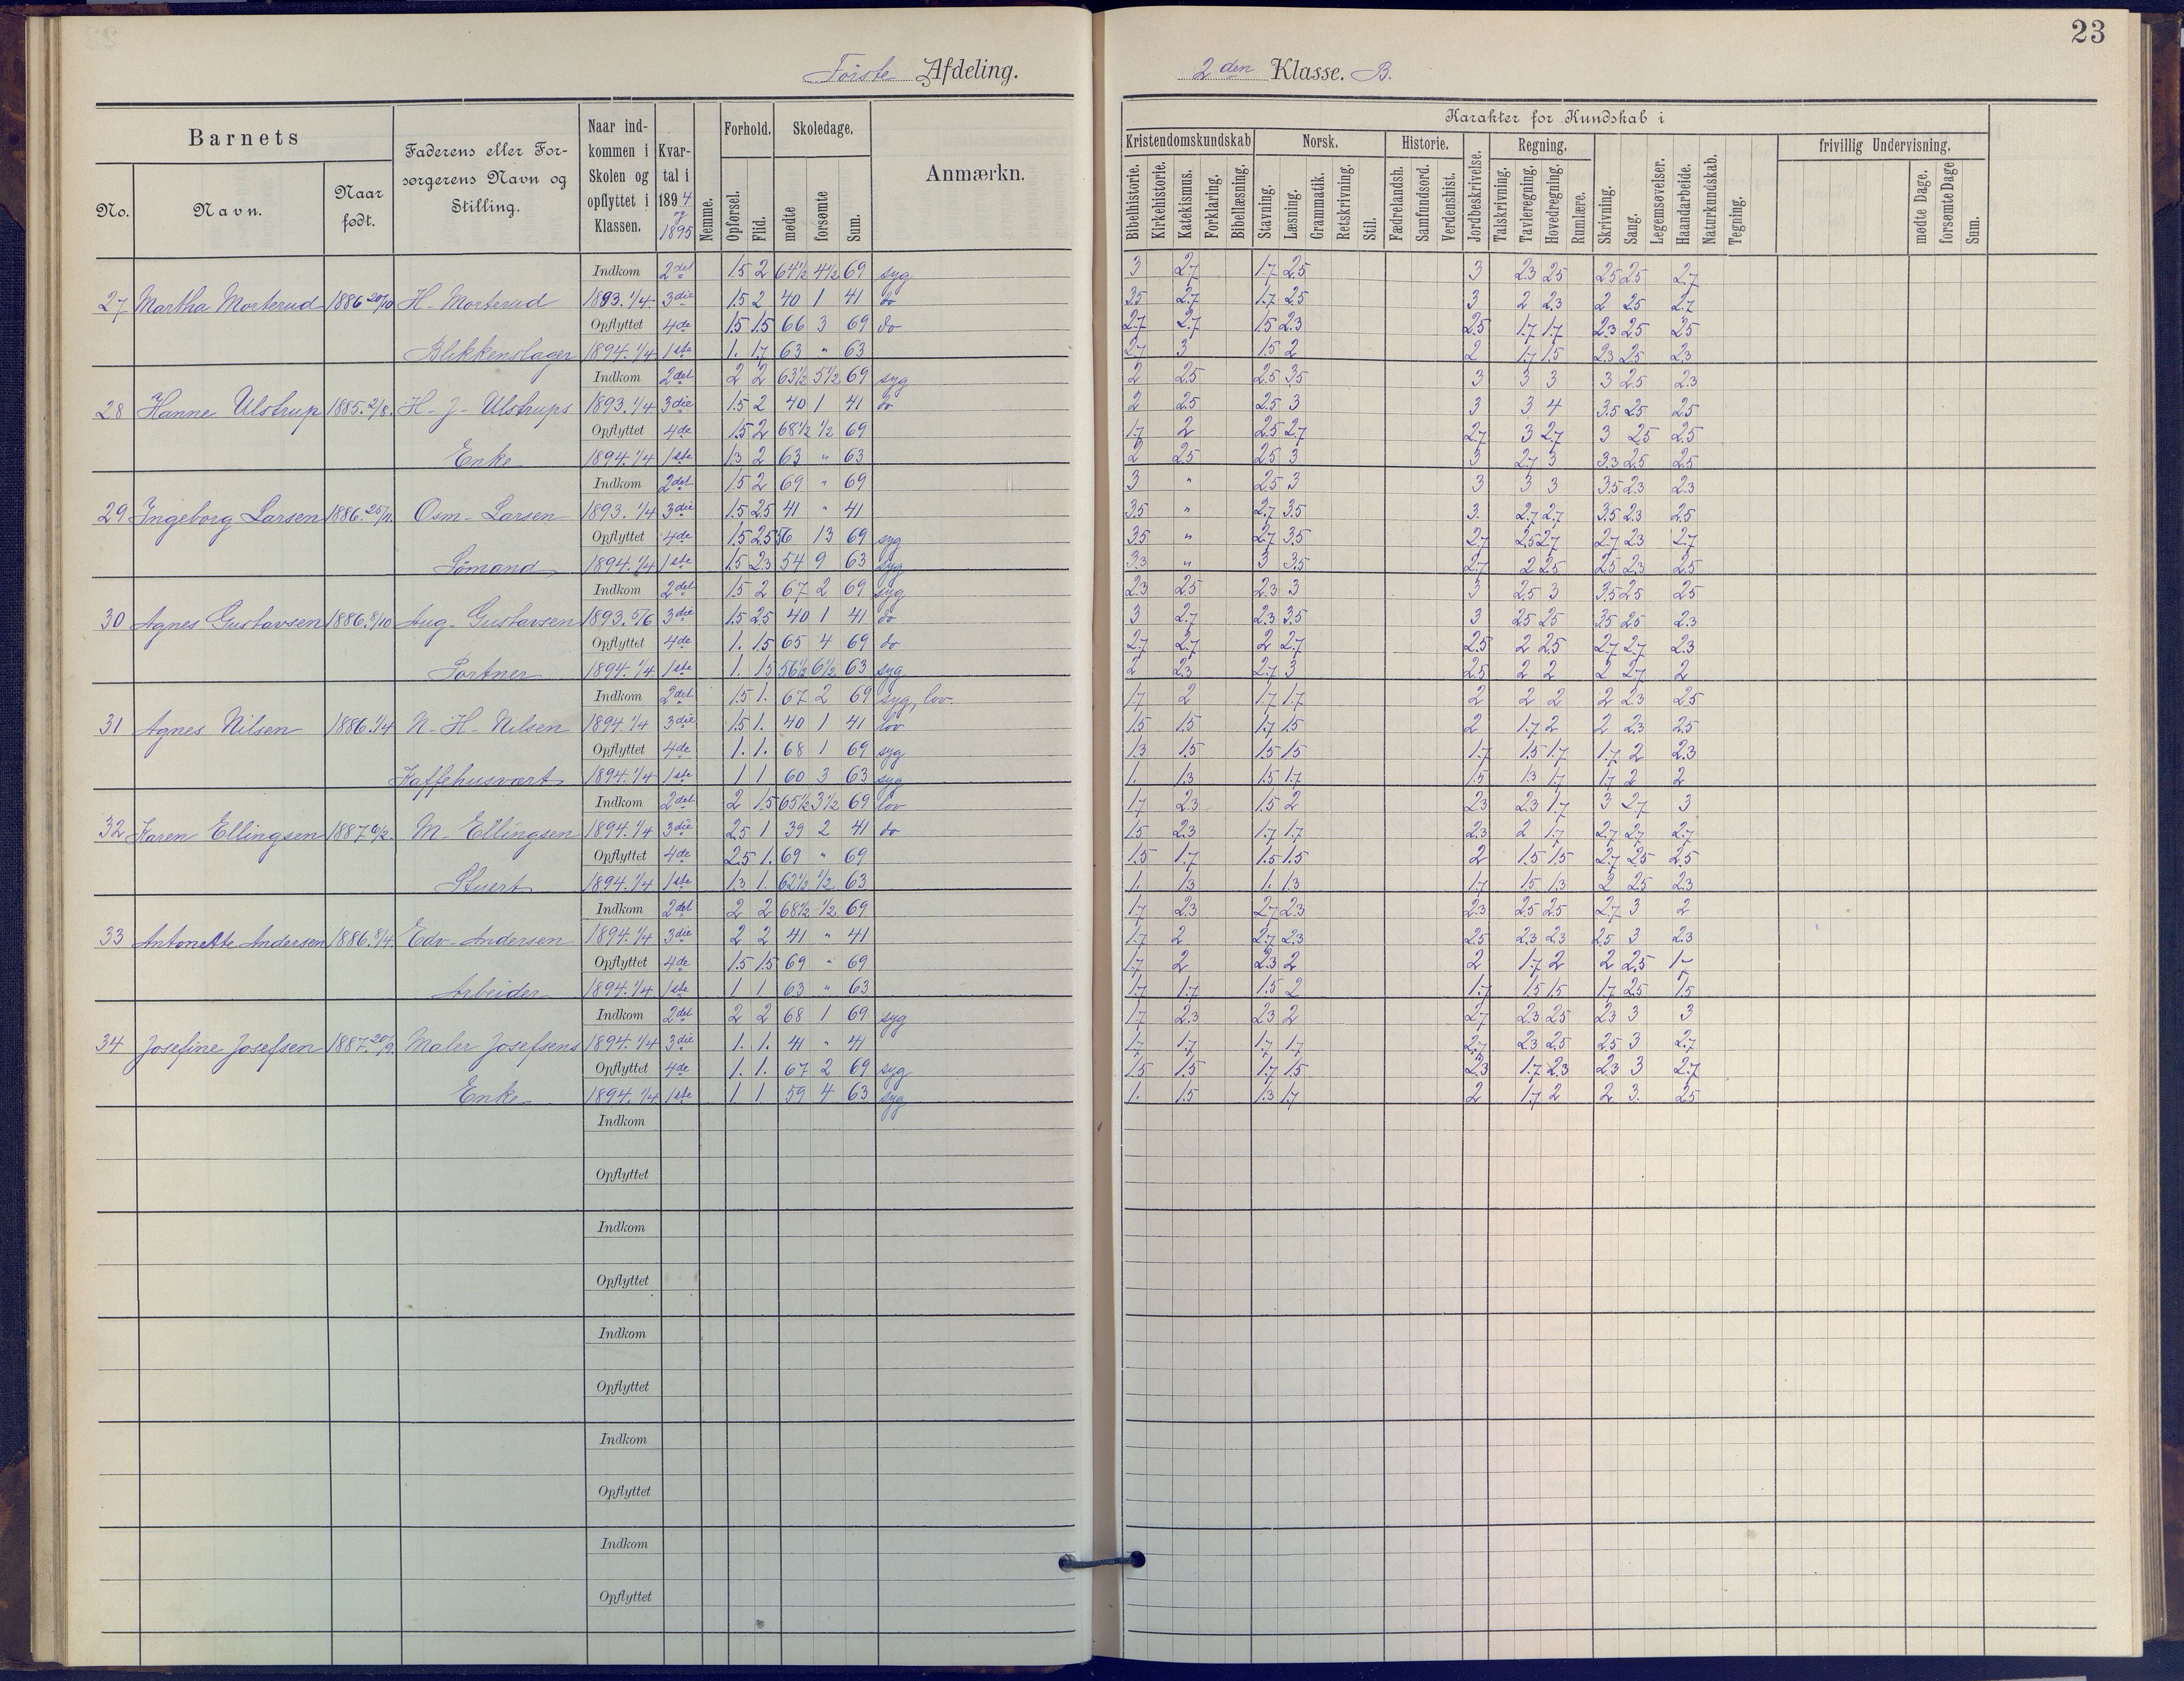 23
Første Afdeling.
2den Klasse. B.
Barnets
No.
Navn.
Naar født.
Faderens eller Forsorgerens Navn og Stilling.
Naar indkommen i Skolen og opflyttet i Klassen.
Kvartal i 1894 / 1895
Nemme.
Forhold.
Opførsel. Flid.
Skoledage.
mødte forsømte Sum.
Anmærkn.
Karakter for Kundskab i
Kristendomskundskab
Bibelhistorie. Kirkehistorie. Katekismus. Forklaring. Bibellæsning.
Norsk.
Stavning. Læsning. Grammatik. Retskrivning. Stil.
Historie.
Fædrelandsh. Samfundsord. Verdenshist.
Jordbeskrivelse.
Regning.
Talskrivning. Tavleregning. Hovedregning. Rumlære.
Skrivning. Sang. Legemsøvelser. Haandarbeide. Naturkundskab. Tegning.
frivillig Undervisning.
mødte Dage. forsømte Dage Sum.
Indkom 2det 1.5 2 64½ 4½ 69 syg 3 2.7 1.7 2.5 3 2.3 2.5 2.5 2.5 2.7
27 Martha Morterud 1886 20/10 H. Morterud 1893. 1/4 3die 1.5 2 40 1 41 do 3.5 2.7 1.7 2.5 3 2 2.3 2 2.5 2.7
Opflyttet 4de 1.5 1.5 66 3 69 do 2.7 2.7 1.5 2.3 2.5 1.7 1.7 2.3 2.5 2.5
Blikkenslager 1894. 1/4 1ste 1. 1.7 63 " 63 2.7 3 1.5 2 2 1.7 1.5 2.3 2.5 2.3
Indkom 2det 2 2 63½ 5½ 69 syg 2 2.5 2.5 3.5 3 3 3 3 2.5 2.3
28 Hanne Ulstrup 1885. 2/8. H. J. Ulstrups 1893. 1/4 3die 1.5 2 40 1 41 do 2 2.5 2.5 3 3 3 4 3.5 2.5 2.5
Opflyttet 4de 1.5 2 68½ ½ 69 1.7 2 2.5 2.7 2.7 3 2.7 3 2.5 2.5
Enke 1894. 1/4 1ste 1.3 2 63 " 63 2 2.5 2.5 3 3 2.7 3 3.3 2.5 2.5
Indkom 2det 1.5 2 69 " 69 3 " 2.5 3 3 3 3 3.5 2.3 2.3
29 Ingeborg Larsen 1886. 25/11. Osm. Larsen 1893. 1/4 3die 1.5 2.5 41 " 41 3.5 " 2.7 3.5 3. 2.7 2.7 3.5 2.3 2.5
Opflyttet 4de 1.5 2.5 56 13 69 syg 3.5 " 2.7 3.5 2.7 2.5 2.7 2.7 2.3 2.7
Sömand 1894. 1/4 1ste 1.5 2.3 54 9 63 syg 3.3 " 3 3.5 2.7 2 2.5 2.5 2.3 2.5
Indkom 2det 1.5 2 67 2 69 syg 2.3 2.5 2.3 3 3 2.5 3 3.5 2.5 2.5
30 Agnes Gustavsen 1886. 8/10 Aug. Gustavsen 1893. 5/6 3die 1.5 2.5 40 1 41 do 3 2.7 2.3 3.5 3 2.5 2.5 3.5 2.5 2.3
Opflyttet 4de 1. 1.5 65 4 69 do 2.7 2.7 2 2.7 2.5 2 2.5 2.7 2.7 2.3
Portner 1894. 1/4. 1ste 1. 1.5 56½ 6½ 63 syg 2 2.3 2.7 3 2.5 2 2 2 2.7 2
Indkom 2det 1.5 1. 67 2 69 syg, lov. 1.7 2 1.7 1.7 2 2 2 2 2.3 2.5
31 Agnes Nilsen 1886. 1/4 N. H. Nilsen 1894 1/4 3die 1.5 1. 40 1 41 lov 1.5 1.5 1.7 1.5 2 1.7 2 2 2.3 2.5
Opflyttet 4de 1. 1. 68 1 69 syg 1.3 1.5 1.5 1.5 1.7 1.5 1.7 1.7 2 2.3
Kaffehusvært 1894. 1/4 1ste 1 1 60 3 63 syg 1. 1.3 1.5 1.7 1.5 1.3 1.7 1.7 2 2
Indkom 2det 2 1.5 65½ 3½ 69 lov 1.7 2.3 1.5 2 2.3 2.3 1.7 3 2.7 3
32 Karen Ellingsen 1887 6/2. M. Ellingsen 1894. 1/4 3die 2.5 1 39 2 41 do 1.5 2.3 1.7 1.7 2.3 2 1.7 2.7 2.7 2.7
Opflyttet 4de 2.5 1. 69 " 69 1.5 1.7 1.5 1.5 2 1.5 1.5 2.7 2.5 2.5
Stuert 1894. 1/4 1ste 1.3 1. 62½ ½ 63 1. 1.3 1. 1.3 1.7 1.5 1.3 2 2.5 2.3
Indkom 2det 2 2 68½ ½ 69 1.7 2.3 2.7 2.3 2.3 2.5 2.5 2.7 3 2
33 Antonette Andersen 1886. 8/4. Edv. Andersen 1894. 1/4 3die 2 2 41 " 41 1.7 2 2.7 2.3 2.5 2.3 2.3 2.5 3 2.3
Opflyttet 4de 1.5 1.5 69 " 69 1.7 2 2.3 2 2 1.7 2 2 2.5
Arbeider 1894. 1/4 1ste 1 1 63 " 63 1.7 1.7 1.5 2 1.7 1.5 1.5 1.7 2.5 1.5
Indkom 2det 2 2 68 1 69 syg 1.7 2.3 2.3 2 2.7 2.3 2.5 2.3 3 3
34 Josefine Josefsen 1887. 20/9. Maler Josefsens 1894. 1/4 3die 1. 1. 41 " 41 1.7 1.7 1.7 1.7 2.7 2.3 2.5 2.5 3 2.7
Opflyttet 4de 1. 1. 67 2 69 syg 1.5 1.5 1.7 1.5 2.3 1.7 2.3 2.3 3 2.7
Enke 1894. 1/4 1ste 1 1 59 4 63 syg 1. 1.5 1.3 1.7 2 1.7 2 2 3. 2.5
Indkom
Opflyttet
Indkom
Opflyttet
Indkom
Opflyttet
Indkom
Opflyttet
Indkom
Opflyttet